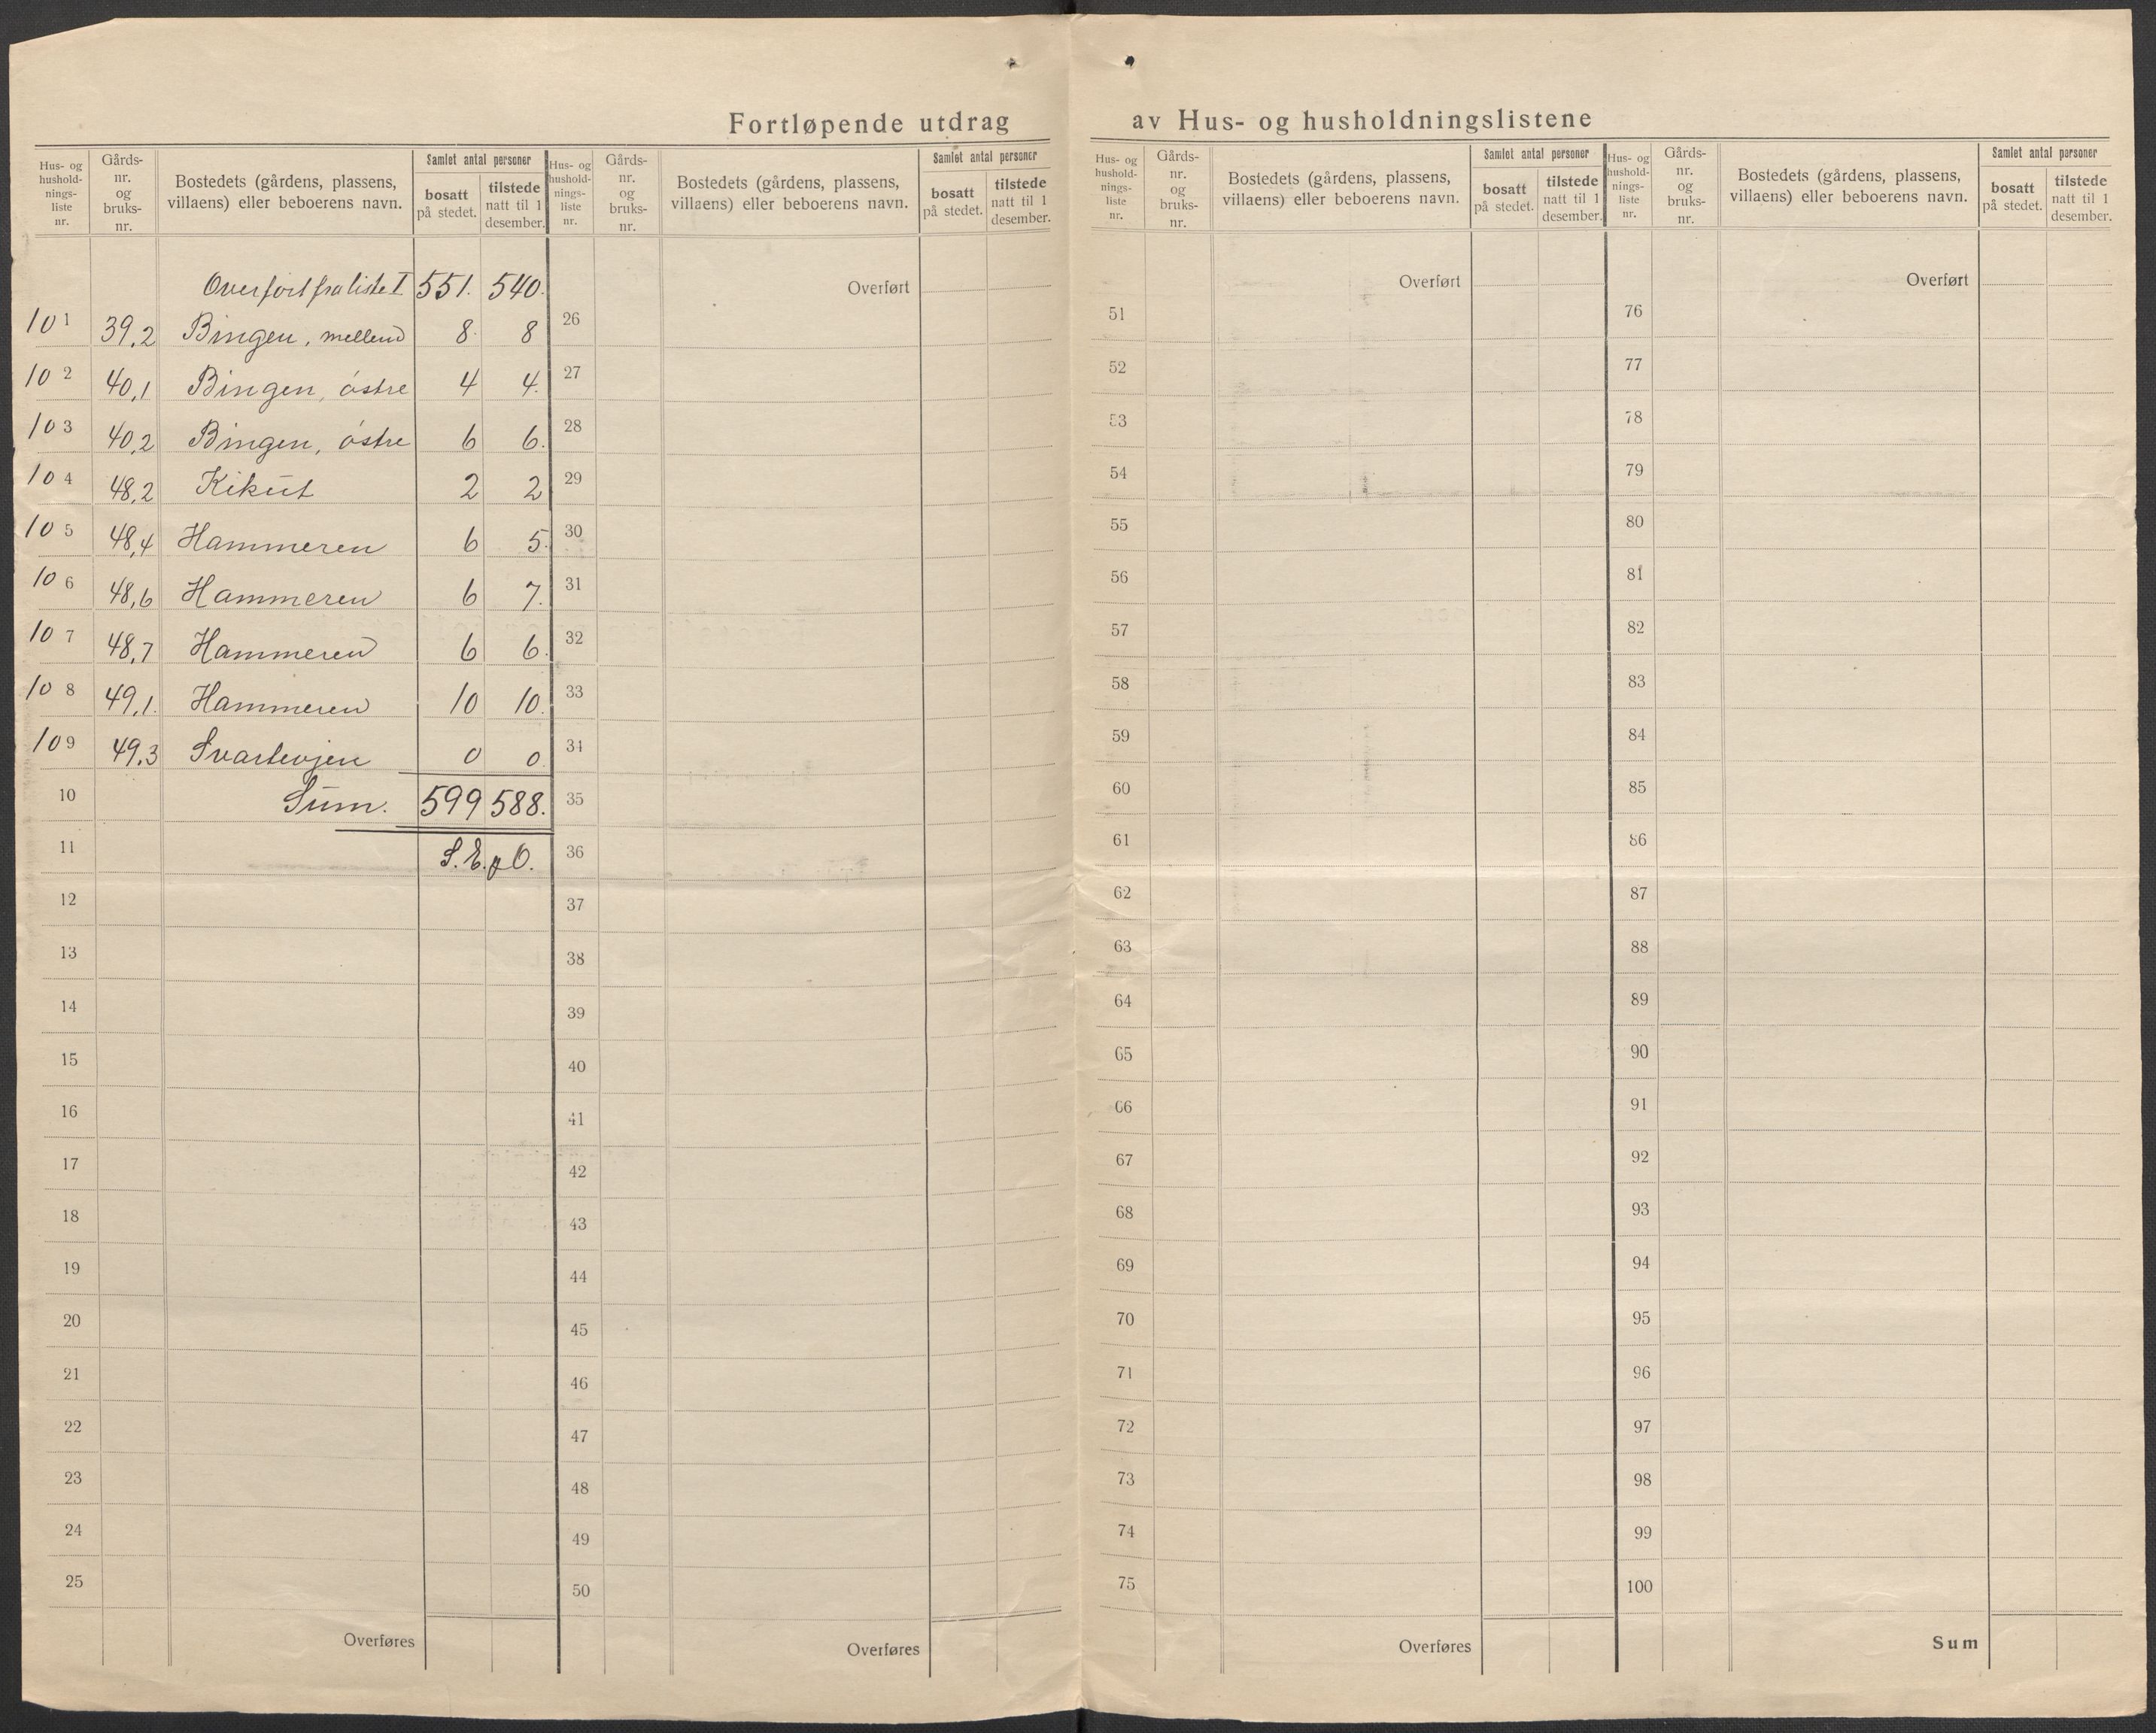 Fortløpende utdrag av Hus- og husholdningslistene
Hus- og
hushold-
nings-
liste
nr.
Gårds-
nr.
og
bruks-
nr.
Bostedets (gårdens, plassens,
villaens) eller beboerens navn.
Samlet antal personer
bosatt
på stedet.
tilstede
natt til 1
desember.
Overført fra liste I 551. 540.
101 39,2 Bingen, mellem 8 8
102 40,1 Bingen, østre 4 4.
103 40,2 Bingen, østre 6 6.
104 48,2 Kikut 2 2
105 48,4 Hammeren 6 5.
106 48,6 Hammeren 6 7.
107 48,7 Hammeren 6 6.
108 49,1. Hammeren 10 10.
109 49,3 Svartevjen 0 0
10 Sum. 599 588.
11 S.E.&O.
12
13
14
15
16
17
18
19
20
21
22
23
24
25
Overføres
Hus- og
hushold-
nings-
liste
nr.
Gårds-
nr.
og
bruks-
nr.
Bostedets (gårdens, plassens,
villaens) eller beboerens navn.
Samlet antal personer
bosatt
på stedet.
tilstede
natt til 1
desember.
Overført
26
27
28
29
30
31
32
33
34
35
36
37
38
39
40
41
42
43
44
45
46
47
48
49
50
Overføres
Hus- og
hushold-
nings-
liste
nr.
Gårds-
nr.
og
bruks-
nr.
Bostedets (gårdens, plassens,
villaens) eller beboerens navn.
Samlet antal personer
bosatt
på stedet.
tilstede
natt til 1
desember.
Overført
51
52
53
54
55
56
57
58
59
60
61
62
63
64
65
66
67
68
69
70
71
72
73
74
75
Overføres
Hus- og
hushold-
nings-
liste
nr.
Gårds-
nr.
og
bruks-
nr.
Bostedets (gårdens, plassens,
villaens) eller beboerens navn.
Samlet antal personer
bosatt
på stedet.
tilstede
natt til 1
desember.
Overført
76
77
78
79
80
81
82
83
84
85
86
87
88
89
90
91
92
93
94
95
96
97
98
99
100
Sum